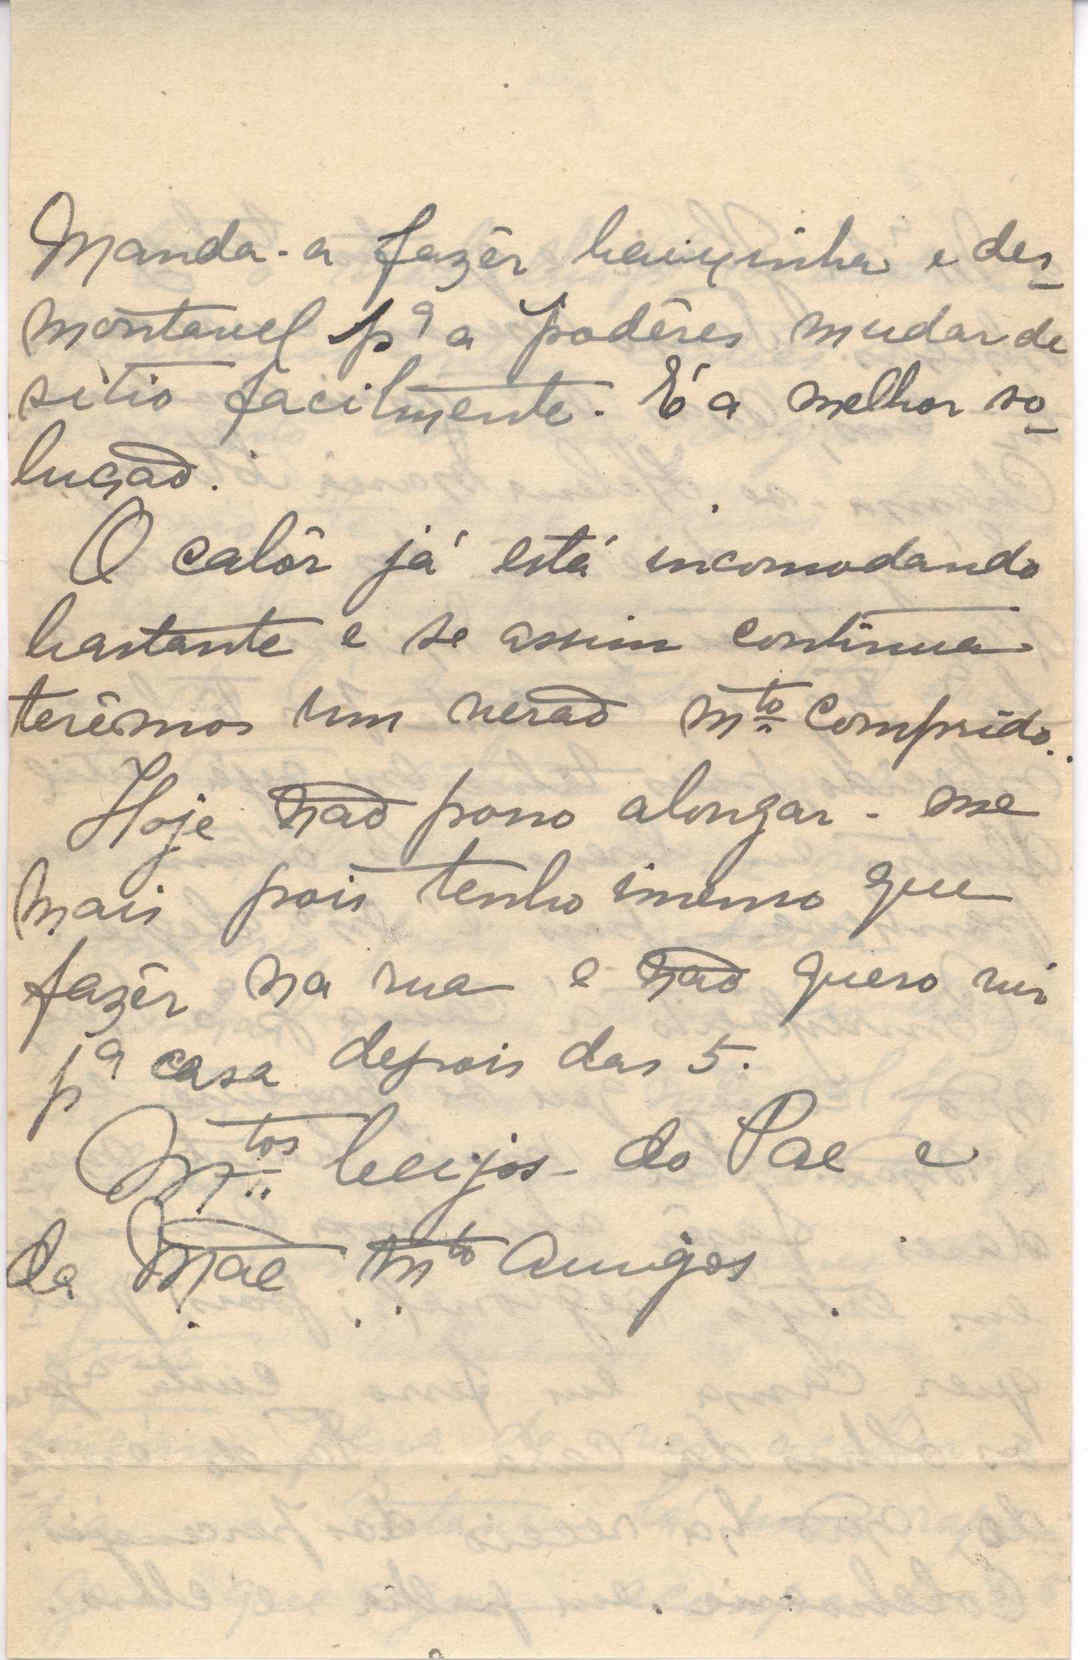 Manda-a fazêr baixinha e des-
montavel pª a podêres mudar de
sitio facilmente. É a melhor so-
lução.
O calôr já está incomodando
bastante e se assim continua
terêmos um verão mto comprido.
Hoje não posso alongar-me
mais pois tenho imenso que
fazêr na rua e não quero vir
pª casa depois das 5.
Mtos beijos do Pae e
da Mãe mto amigos